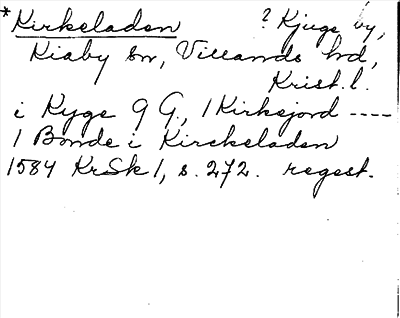 *Kirkeladen ? Kjuge by,
Kiaby sn, Villands hd,
Krist. l.
i Kyge 9 G., 1 Kirkejord ----
1 Bonde i Kirckeladen
1584 KrSk 1, s. 272. regest.